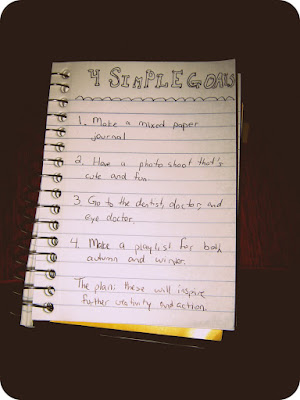 4 SIMPLE GOALS
1. Make a mixed paper
journal
2. Have a photo shoot that's
cute and fun.
3. Go to the dentist, doctor, and
eye doctor.
4. Make a playlist for both
autumn and winter.
The plan: these will inspire
further creativity and action.